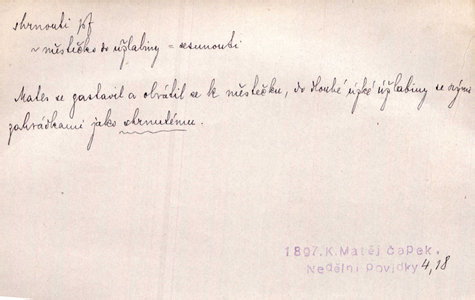 shrnouti pf
~ městečko do úžlabiny = sesunouti
Mates se zastavil a obrátil se k městečku, do dlouhé úzké úžlabiny se svými
zahrádkami jako shrnutému.
1897. K. Matěj Čapek.
Nedělní Povídky 4, 18